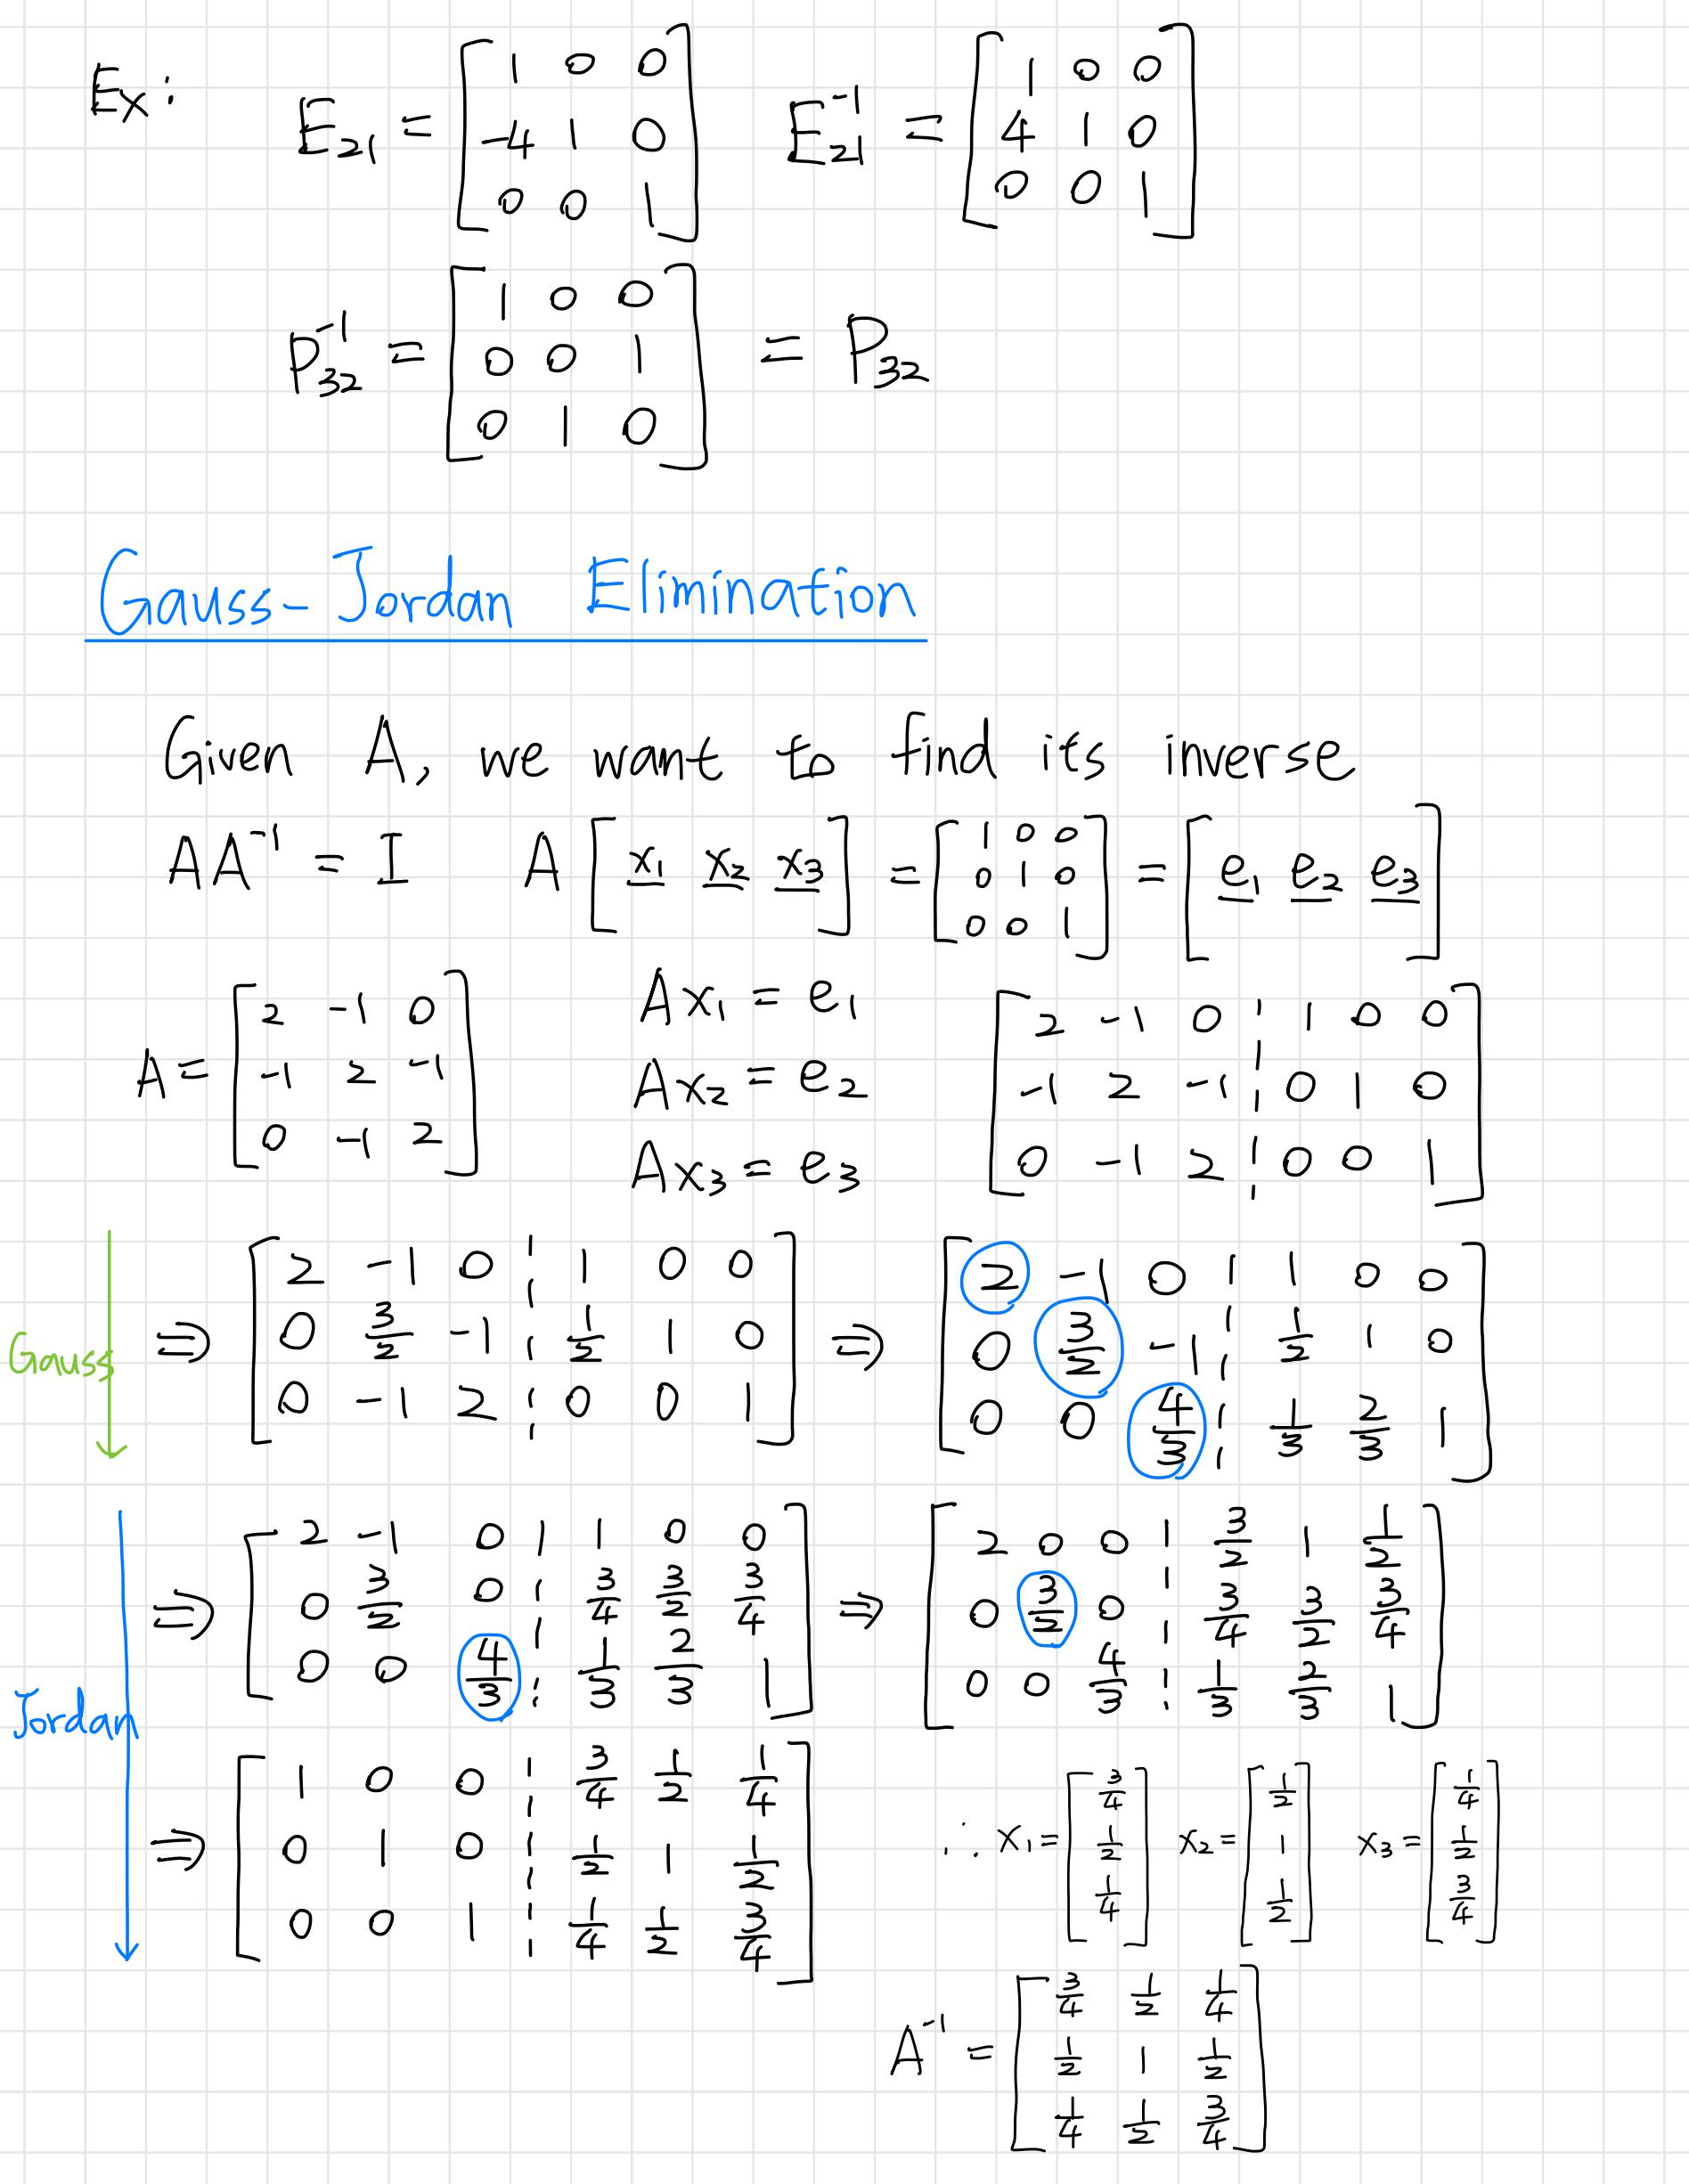 Ex: E₂₁ = [1 0 0; -4 1 0; 0 0 1] E₂₁⁻¹ = [1 0 0; 4 1 0; 0 0 1]
P₃₂⁻¹ = [1 0 0; 0 0 1; 0 1 0] = P₃₂
Gauss-Jordan Elimination
Given A, we want to find its inverse
AA⁻¹ = I A[x₁ x₂ x₃] = [1 0 0; 0 1 0; 0 0 1] = [e₁ e₂ e₃]
A = [2 -1 0; -1 2 -1; 0 -1 2]
Ax₁ = e₁
Ax₂ = e₂
Ax₃ = e₃
[2 -1 0 ¦ 1 0 0; -1 2 -1 ¦ 0 1 0; 0 -1 2 ¦ 0 0 1]
Gauss
⇒ [2 -1 0 ¦ 1 0 0; 0 3/2 -1 ¦ 1/2 1 0; 0 -1 2 ¦ 0 0 1] ⇒ [2 -1 0 ¦ 1 0 0; 0 3/2 -1 ¦ 1/2 1 0; 0 0 4/3 ¦ 1/3 2/3 1]
Jordan
⇒ [2 -1 0 ¦ 1 0 0; 0 3/2 0 ¦ 3/4 3/2 3/4; 0 0 4/3 ¦ 1/3 2/3 1] ⇒ [2 0 0 ¦ 3/2 1 1/2; 0 3/2 0 ¦ 3/4 3/2 3/4; 0 0 4/3 ¦ 1/3 2/3 1]
⇒ [1 0 0 ¦ 3/4 1/2 1/4; 0 1 0 ¦ 1/2 1 1/2; 0 0 1 ¦ 1/4 1/2 3/4] ∴ x₁ = [3/4; 1/2; 1/4] x₂ = [1/2; 1; 1/2] x₃ = [1/4; 1/2; 3/4]
A⁻¹ = [3/4 1/2 1/4; 1/2 1 1/2; 1/4 1/2 3/4]